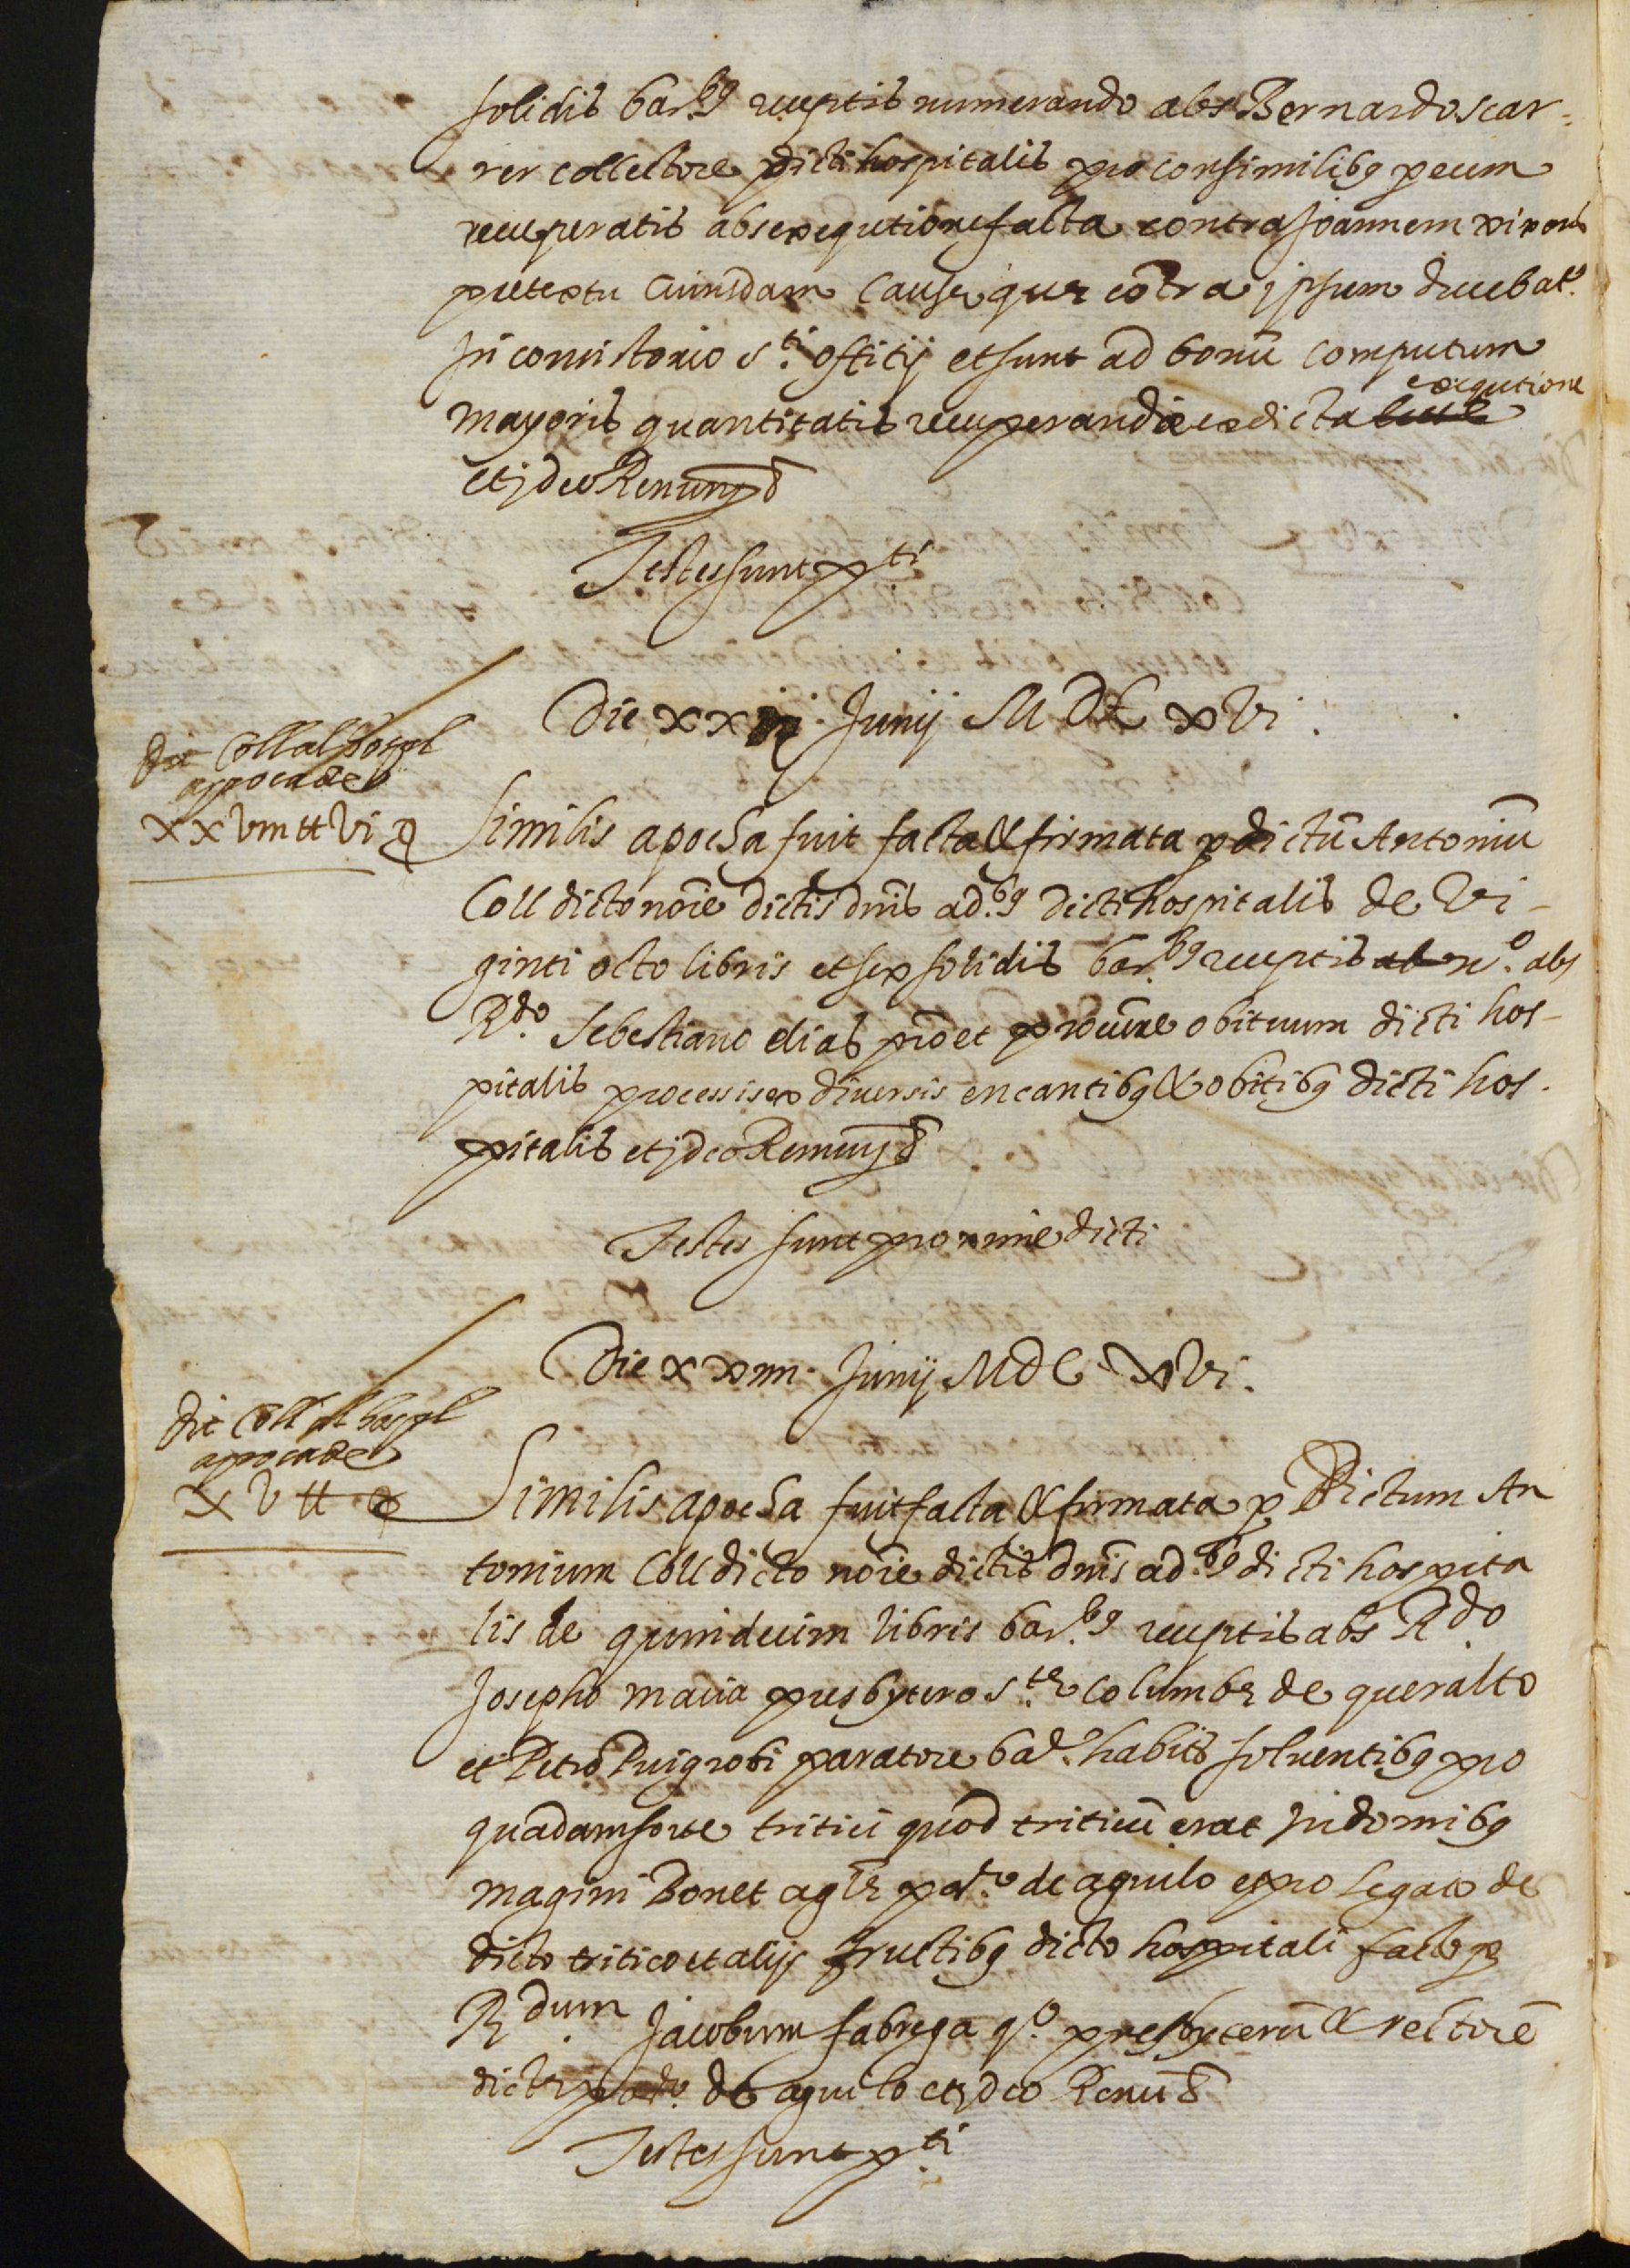 solidis bar.bꝰ receptis numerando abs Bernardo scar=
rer collectore p̱dicti hospitalis pro consimilibꝰ p̱ eum
recuperatis abs exequtione facta contra Joannem
pretextu cuiusdam cause que cōtra ipsum ducebat.ʳ
In consistorio s.ti offitij et sunt ad bonū computum
mayoris quantitatis recuperandæ ex dicta exequtione
et ideo Renung̃
Testes sunt p̱.ti
Die xxiij Junij MDCxVi.
dit Coll al hospl
appoca de
xxviii ₶ Vi ß
Similis apocha fuit facta & firmata p̱ dictū Antoniū
Coll dicto noīe dictis dnīs ad.bꝰ dicti hospitalis de Vi-
ginti octo libris et sex solidis bar.bꝰ receptis nᵒ. abs
R.do Sebestiano dias prō et procure obituum dicti hos-
pitalis processis ex diversis encantibꝰ & obitibꝰ dicti hos-
pitalis et ideo Renung̃
Testes sunt proxime dicti
Die xxiiii. Junij MDC. xVi.
dit Coll al hospl
appoca de
xV ₶
Similis apocha fuit facta & firmata p̱ Dictum An
tonium Coll dicto noīe dictis dnīs ad.bꝰ dicti hospita
lis de quindecim libris bar.bꝰ receptis abs R.do
Josepho macia presbytero s.te columbe de queralto
et Petro Puigrobi paratore habits solventibꝰ pro
quadam sorte tritici quod triticū erat In domibꝰ
magini Bonet de aguilo et pro legato de
dicto tritico et alijs fructibꝰ dicto hospitali facto p̱
R.dum Jacobum fabrega qᵒ. presbyterū & rectorē
dicte de aguilo et ideo Renū
Testes sunt p̱.ti